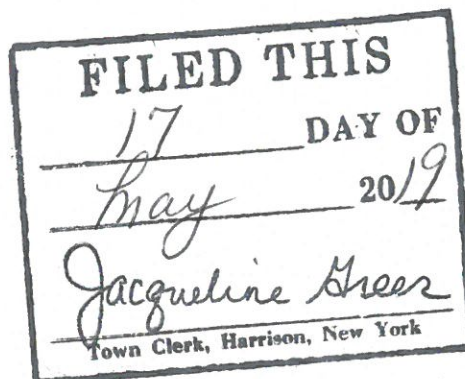 FILED THIS
17 DAY OF
May 2019
Jacqueline Greer
Town Clerk, Harrison, New York